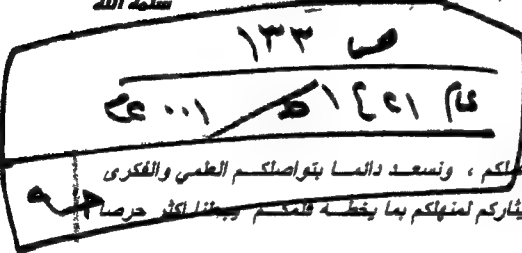 سلمه الله
ص ١٣٣
عام ١٤٢١ه / ٢٠٠١م
ملكم ، ونسعد دائما بتواصلكم العلمي والفكرى
يثاركم لمنهلكم بما يخطه قلمكم ويجعلنا أكثر حرصا